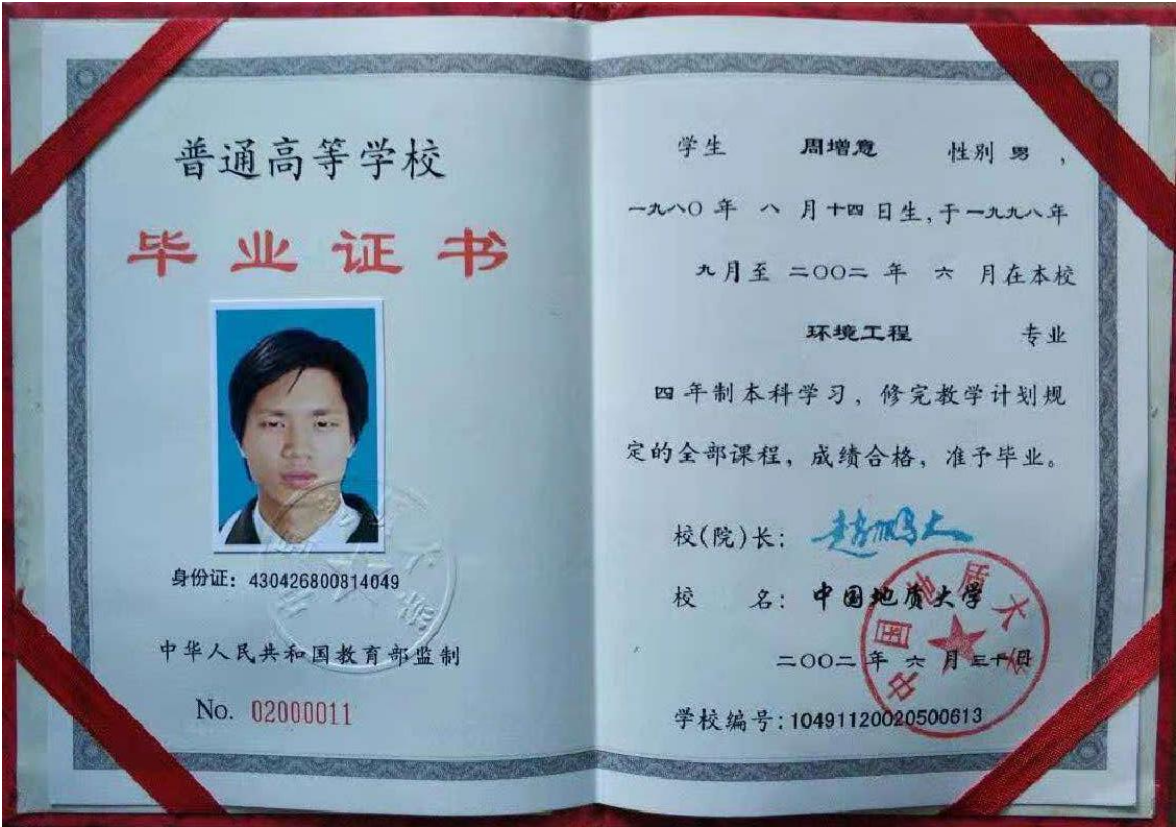 普通高等学校
毕业证书
身份证：430426800814049
中华人民共和国教育部监制
No. 02000011
学生 周增意 性别 男，
一九八〇年 八 月十四日生，于一九九八年
九月至 二〇〇二 年 六 月在本校
环境工程 专业
四年制本科学习，修完教学计划规
定的全部课程，成绩合格，准予毕业。
校(院)长：赵鹏大
校 名：中国地质大学
中国地质大学
二〇〇二年 六 月三十日
学校编号：10491120020500613